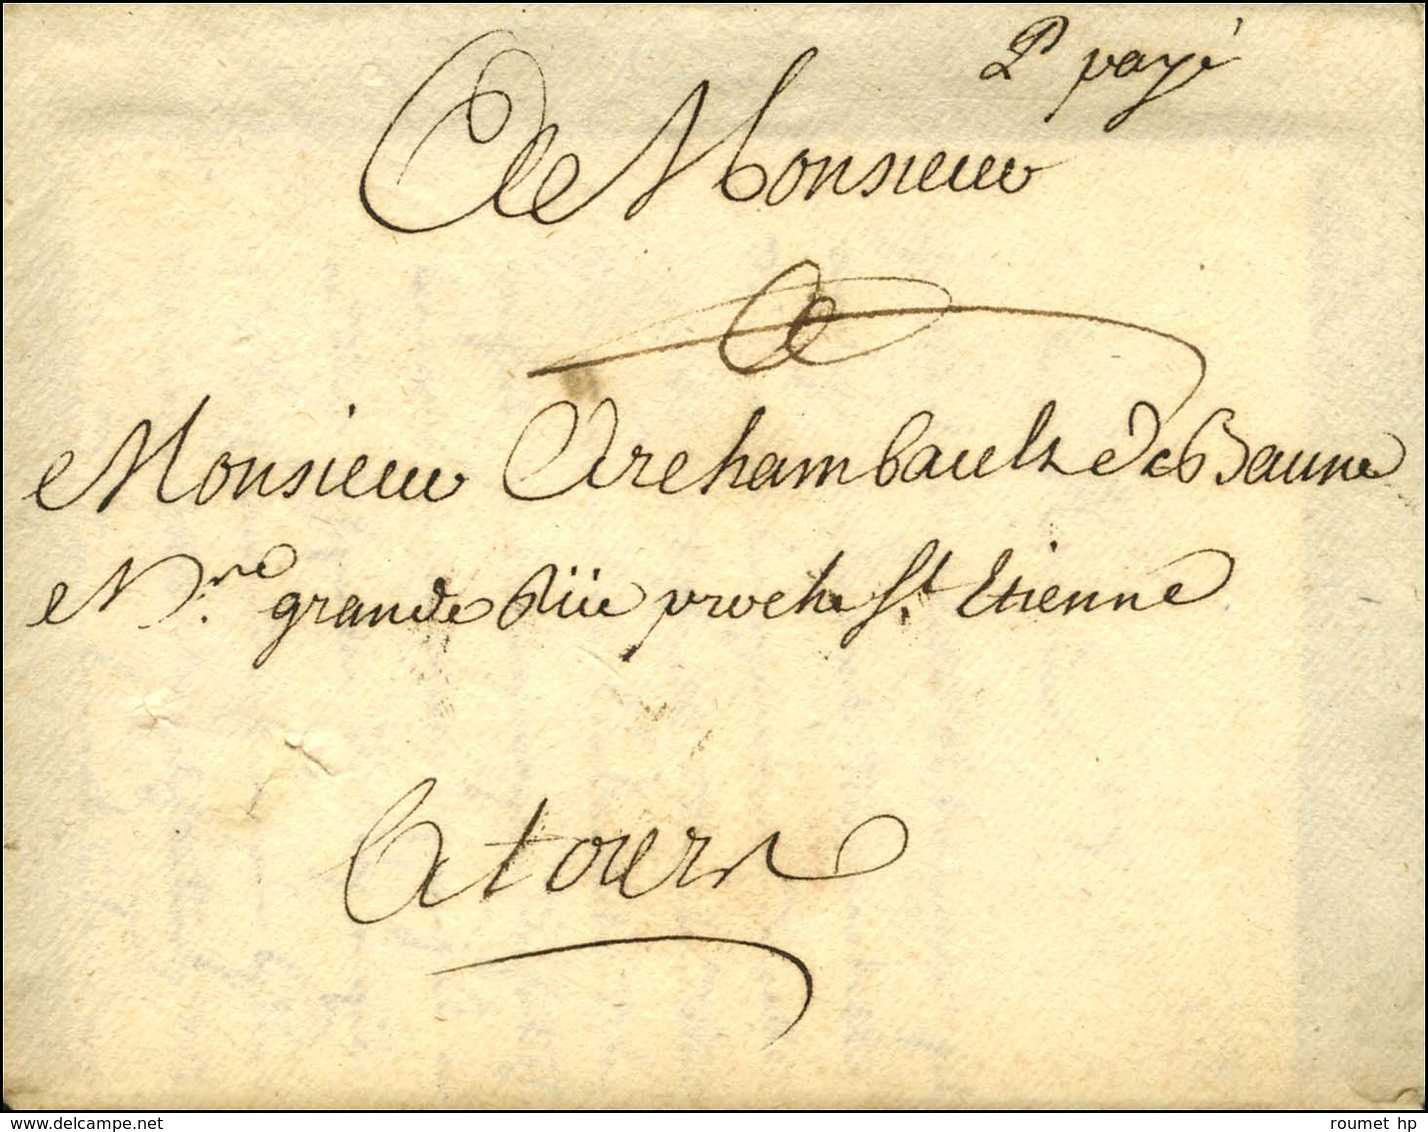 P. payé
A Monsieur
Monsieur Archambault de Baune
N.re grande Rüe proche St. Etienne
A tours
www.delcampe.net
roumet hp